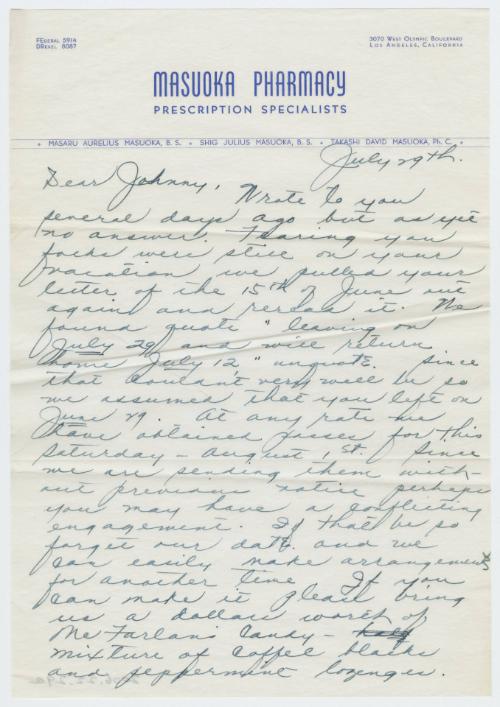 FEderal 5914
DRexel 8087
3070 West Olympic Boulevard
Los Angeles, California
MASUOKA PHARMACY
PRESCRIPTION SPECIALISTS
• MASARU AURELIUS MASUOKA, B. S. • SHIG JULIUS MASUOKA, B. S. • TAKASHI DAVID MASUOKA, Ph. C. •
July 29th.
Dear Johnny,
Wrote to you
several days ago but as yet
no answer. Fearing you
folks were still on your
vacation, we pulled your
letter of the 15th of June out
again and reread it. We
found quote "leaving on
July 29 and will return
home July 12," unquote. Since
that couldn't very well be so
we assumed that you left on
June 29. At any rate we
have obtained passes for this
Saturday - August 1st. Since
we are sending them with-
out previous notice perhaps
you may have a conflicting
engagement. If that be so
forget our date and we
can easily make arrangements
for another time. If you
can make it please bring
us a dollars worth of
McFarlan's Candy -
mixture of coffee blacks
and peppermint lozenges.